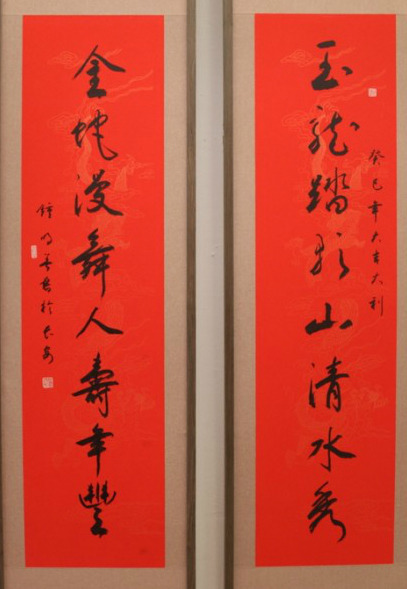 玉龍踏山清水秀
癸巳年大吉大利
金蛇漫舞人壽年豐
鍾明善書於長安